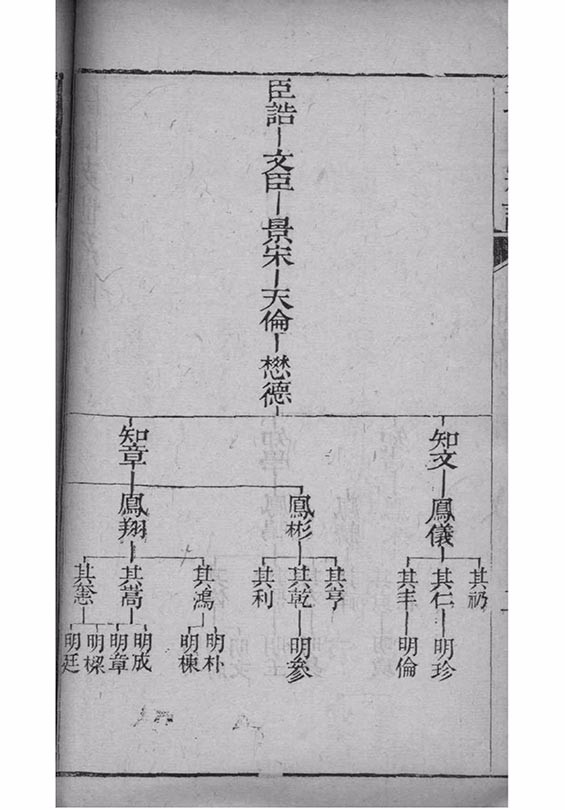 臣誥
文臣
景宋
天倫
懋德
知文
知章
鳳儀
鳳彬
鳳翔
其礽
其仁
其丰
其亨
其乾
其利
其鴻
其嵩
明珍
明倫
明參
明朴
明棟
明成
明章
明樑
明廷